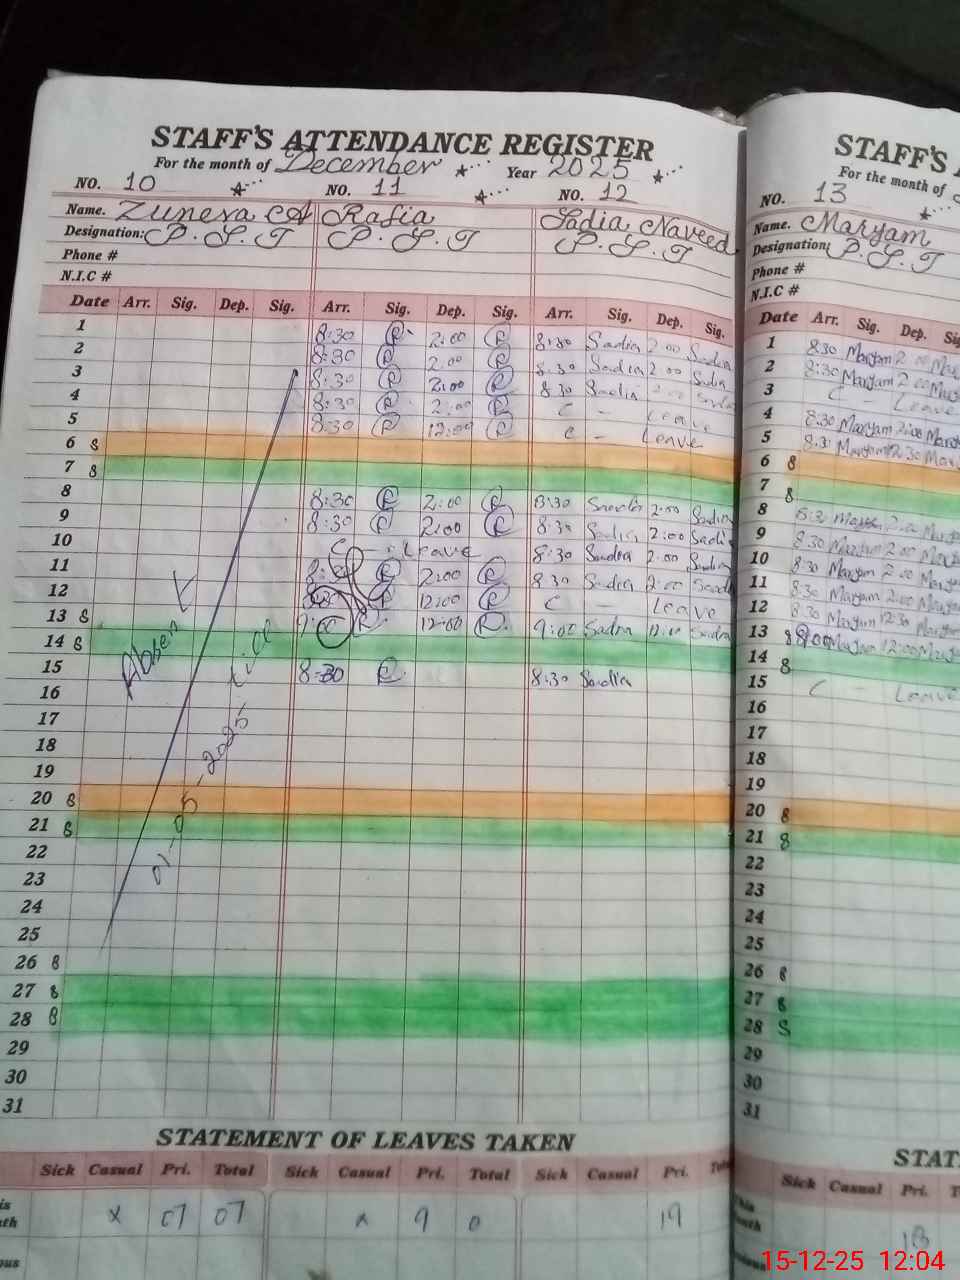 STAFF'S ATTENDANCE REGISTER
For the month of December Year 2025
NO. 10 NO. 11 NO. 12
Name. Zunera Rafia Sadia Naveed
Designation: P.S.T P.S.T P.S.T
Phone #
N.I.C #
Date Arr. Sig. Dep. Sig. Arr. Sig. Dep. Sig. Arr. Sig. Dep. Sig.
1 8:30 R 2:00 R 8:30 Sadia 2:00 Sadia
2 8:30 R 2:00 R 8:30 Sadia 2:00 Sadia
3 8:30 R 2:00 R 8:30 Sadia 2:00 Sadia
4 8:30 R 2:00 R C - Leave
5 8:30 R 12:00 R C - Leave
6 S
7 S
8 8:30 R 2:00 R 8:30 Sadia 2:00 Sadia
9 8:30 R 2:00 R 8:30 Sadia 2:00 Sadia
10 C - Leave 8:30 Sadia 2:00 Sadia
11 R 2:00 R 8:30 Sadia 2:00 Sadia
12 12:00 R C - Leave
13 S R 12:00 R 9:00 Sadia 12:00 Sadia
14 S
15 8:30 R 8:30 Sadia
16
17
18
19
20 S
21 S
22
23
24
25
26 S
27 S
28 S
29
30
31
Absent
till
01-05-2025
STATEMENT OF LEAVES TAKEN
Sick Casual Pri. Total Sick Casual Pri. Total Sick Casual Pri.
x 07 07 9 0 19
STAFF'S
For the month of
NO. 13
Name. Maryam
Designation: P.S.T
Phone #
N.I.C #
Date Arr. Sig. Dep.
1 8:30 Maryam 2:00
2 8:30 Maryam 2:00
3 C - Leave
4 8:30 Maryam 2:00 Maryam
5 8:30 Maryam 12:30
6 S
7 S
8 8:30 2:00
9 8:30 Maryam 2:00
10 8:30 Maryam 2:00
11 8:30 Maryam 2:00
12 8:30 Maryam 12:30
13 S 9:00 Maryam 12:00
14 S
15 C - Leave
16
17
18
19
20 S
21 S
22
23
24
25
26 S
27 S
28 S
29
30
31
Sick Casual Pri.
15-12-25 12:04